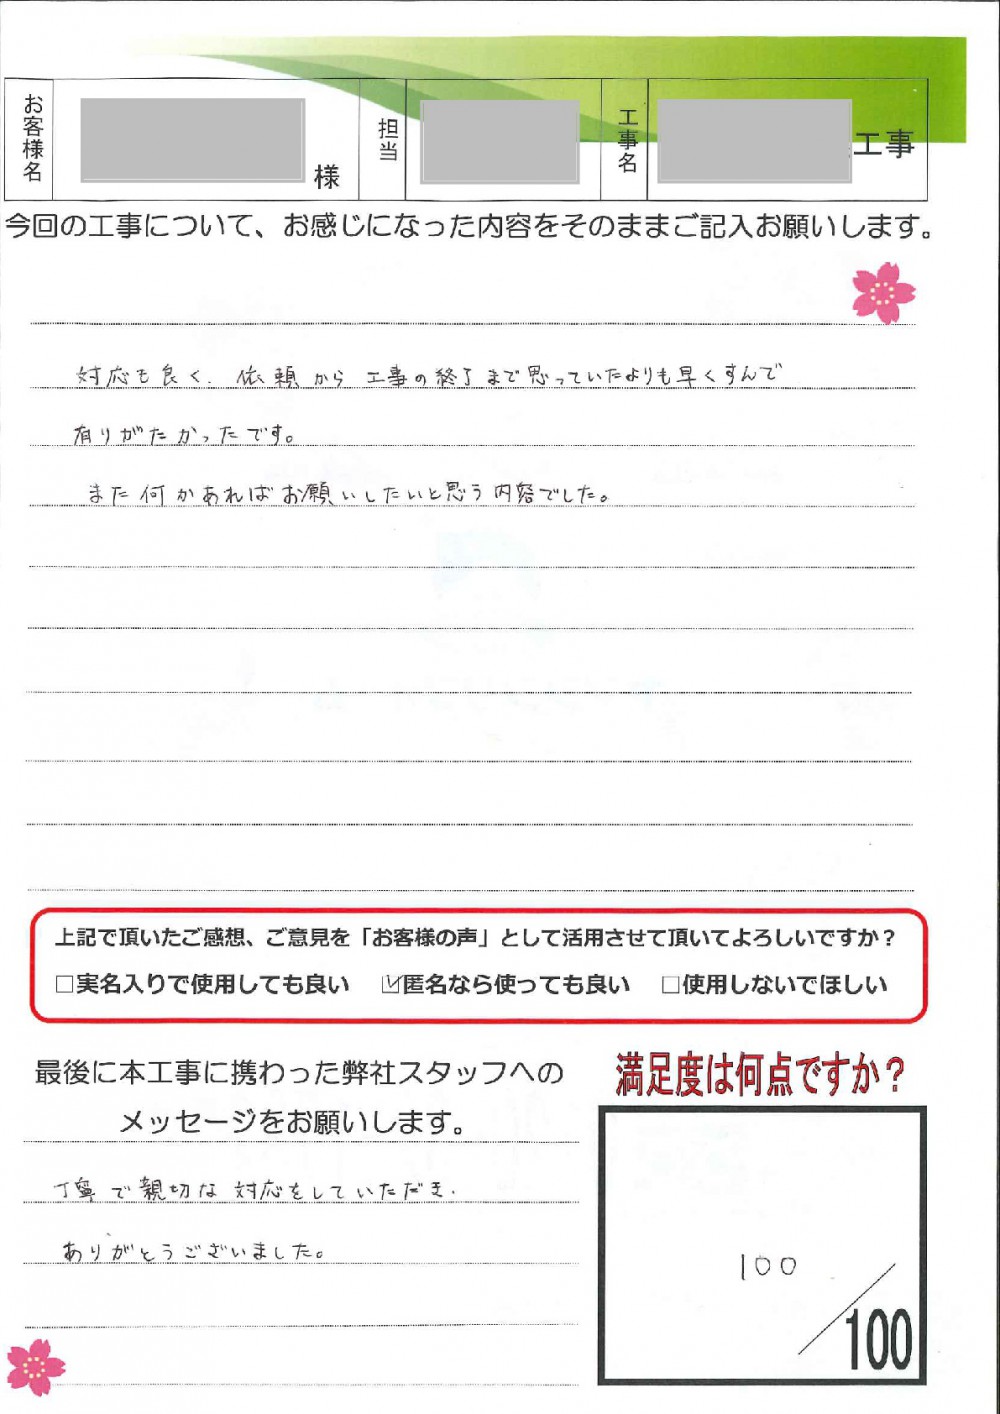 お客様名 様 担当 工事名 工事
今回の工事について、お感じになった内容をそのままご記入お願いします。
対応も良く、依頼から工事の終了まで思っていたよりも早くすんで
有りがたかったです。
また何かあればお願いしたいと思う内容でした。
上記で頂いたご感想、ご意見を「お客様の声」として活用させて頂いてよろしいですか？
□実名入りで使用しても良い ☑匿名なら使っても良い □使用しないでほしい
最後に本工事に携わった弊社スタッフへの
メッセージをお願いします。
丁寧で親切な対応をしていただき、
ありがとうございました。
満足度は何点ですか？
100
/100